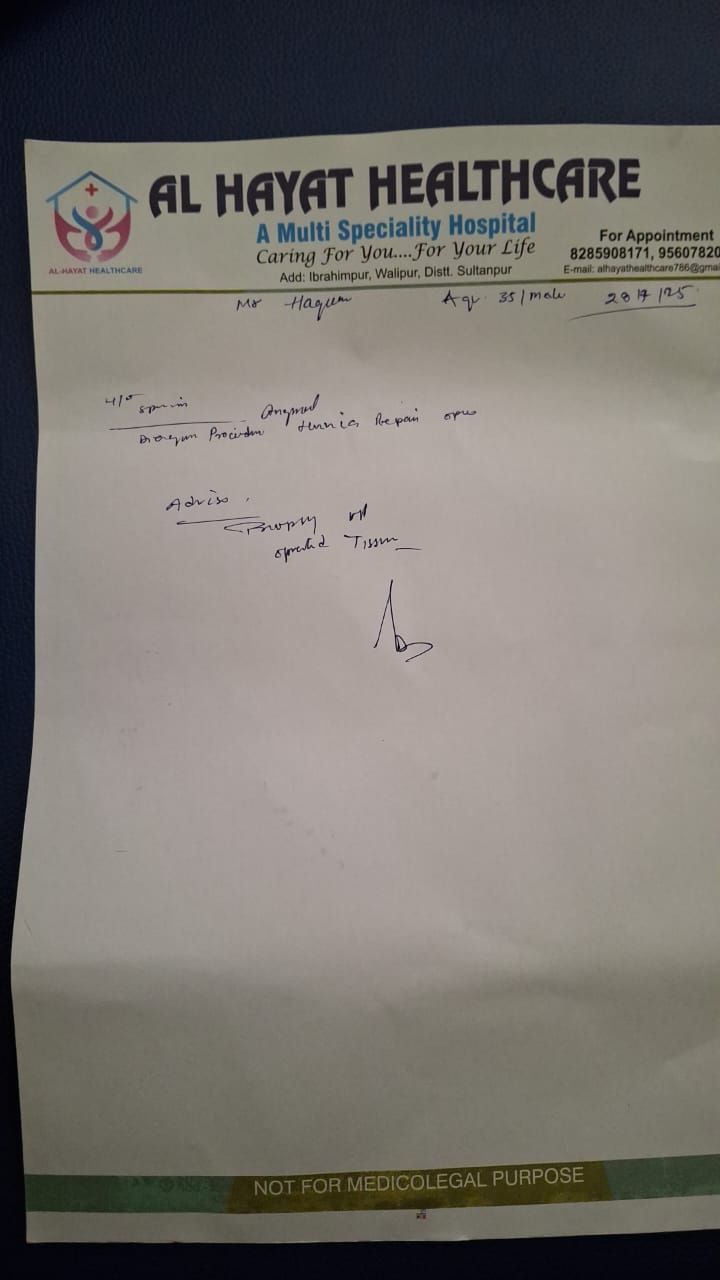 AL HAYAT HEALTHCARE
A Multi Speciality Hospital
Caring For You....For Your Life
Add: Ibrahimpur, Walipur, Distt. Sultanpur
AL-HAYAT HEALTHCARE
For Appointment
8285908171, 95607820
E-mail: alhayathealthcare786@gmai
Mr Haqum Age 35/male
Hernia Repair open
Advise
Biopsy
operated Tissue
NOT FOR MEDICOLEGAL PURPOSE